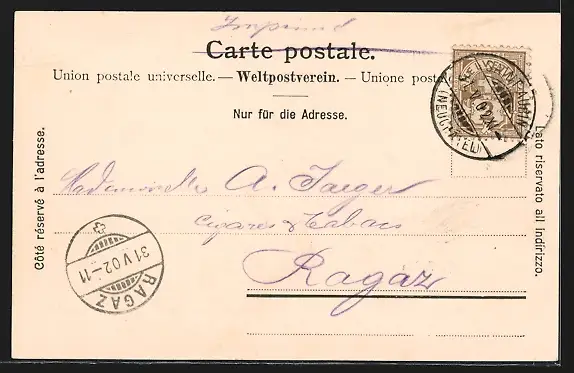 Imprimé
Carte postale.
Union postale universelle. — Weltpostverein. — Unione posta
Nur für die Adresse.
Côté réservé à l'adresse.
Lato riservato all indirizzo.
Mademoiselle A. Jaeger
Cigares & Tabacs
Ragaz
(NEUCHATEL)
31 V 02 - 11
RAGAZ